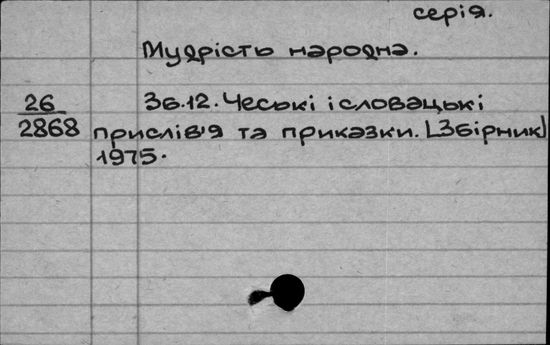 серія.
Мудрість народна.
26 Зб.12. Чеські і словацькі
2868 прислів'я та приказки. [Збірник]
1975.